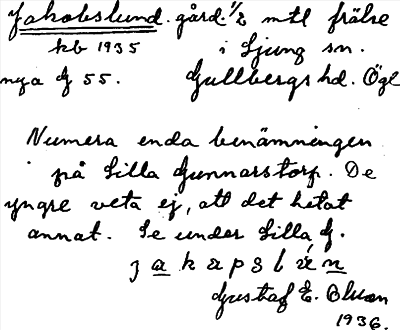 Jakobslund. gård. 1/2 mtl frälse
kb 1935 i Ljung sn.
nya G 55. Gullbergs hd. Ögl
Numera enda benämningen
på Lilla Gunnarstorp. De
yngre veta ej, att det hetat
annat. Se under Lilla G.
Gustaf E.
1936.